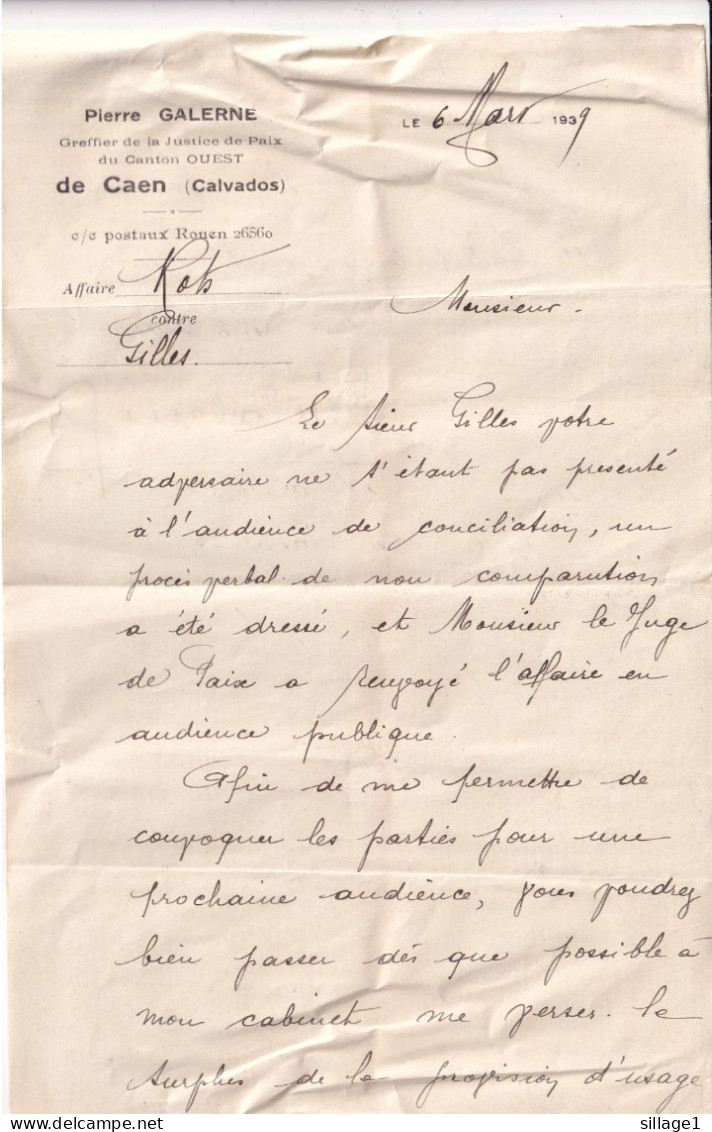 Pierre GALERNE
Greffier de la Justice de Paix
du Canton OUEST
de Caen (Calvados)
c/c postaux Rouen 26560
LE 6 Mars 1939
Affaire
contre
Gilles.
Monsieur.
Le sieur Gilles votre
adversaire ne s'étant pas presenté
à l'audience de conciliation, un
procès verbal de non comparution
a été dressé, et Monsieur le Juge
de Paix a renvoyé l'affaire en
audience publique.
Afin de me permettre de
convoquer les parties pour une
prochaine audience, vous voudrez
bien passer dés que possible à
mon cabinet me verser le
surplus de la provision d'usage
sillage1